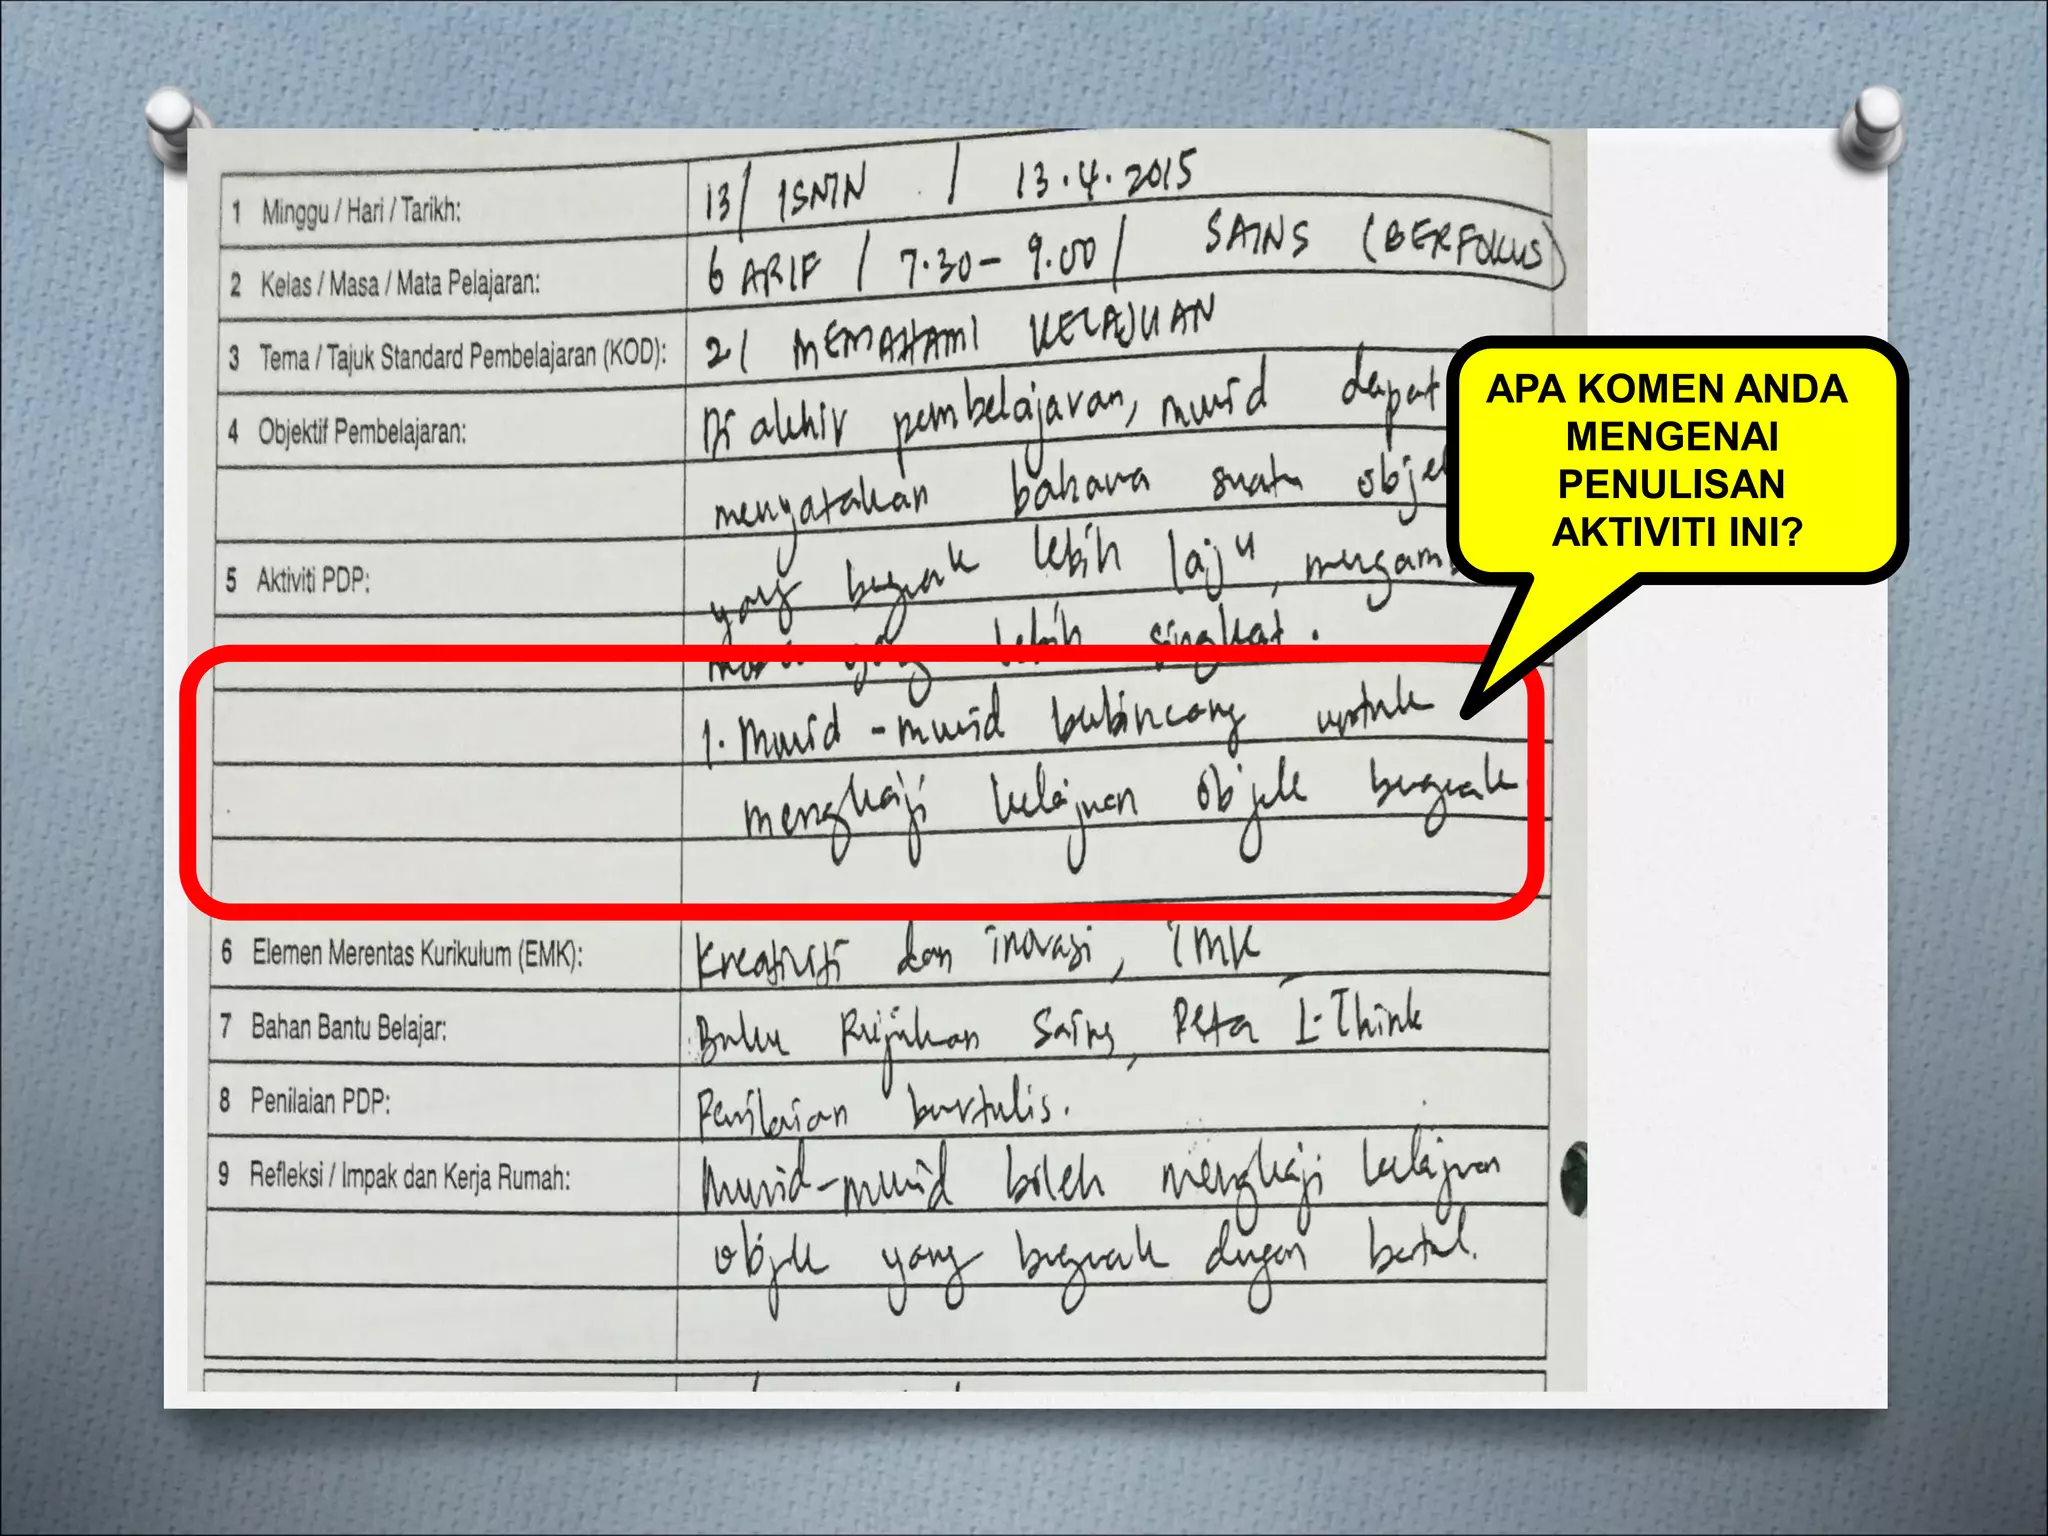 1 Minggu / Hari / Tarikh: 13/ ISNIN / 13.4.2015
2 Kelas / Masa / Mata Pelajaran: 6 ARIF / 7.30 - 9.00 / SAINS (BERFOKUS)
3 Tema / Tajuk Standard Pembelajaran (KOD): 2/ MEMAHAMI KELAJUAN
4 Objektif Pembelajaran: Di akhir pembelajaran, murid dapat
menyatakan bahawa suatu obje
5 Aktiviti PDP: yang bergerak lebih laju, mengam
masa yang lebih singkat.
1. Murid-murid berbincang untuk
mengkaji kelajuan objek bergerak
6 Elemen Merentas Kurikulum (EMK): Kreativiti dan inovasi, TMK
7 Bahan Bantu Belajar: Buku Rujukan Sains, Peta I-Think
8 Penilaian PDP: Penilaian bertulis.
9 Refleksi / Impak dan Kerja Rumah: Murid-murid boleh mengkaji kelajuan
objek yang bergerak dengan betul.
APA KOMEN ANDA
MENGENAI
PENULISAN
AKTIVITI INI?